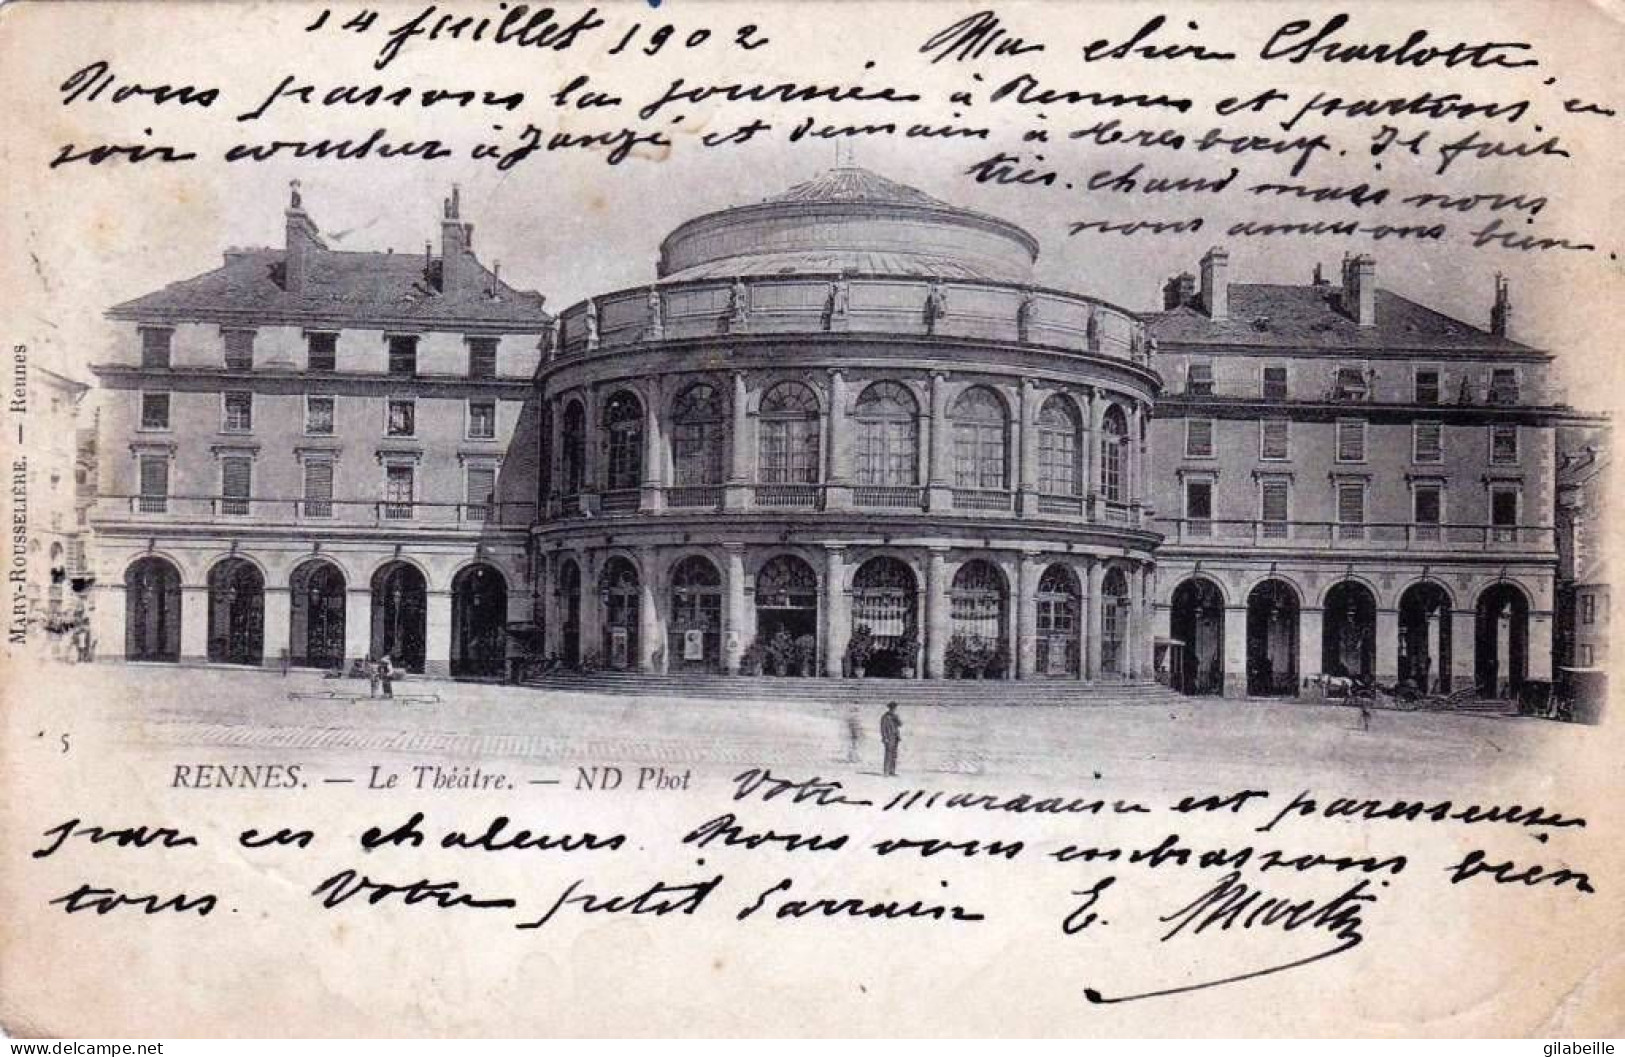 14 Juillet 1902 Ma chère Charlotte,
Nous passons la journée à Rennes et partons ce
soir coucher à Janzé et demain à Kresbœuf. Il fait
très chaud mais nous
nous amusons bien.
MARY-ROUSSELIÈRE. — Rennes
5
RENNES. — Le Théâtre. — ND Phot
Votre marraine est paresseuse
par ces chaleurs. Nous vous embrassons bien
tous. Votre petit Parrain E. Martin
gilabeille